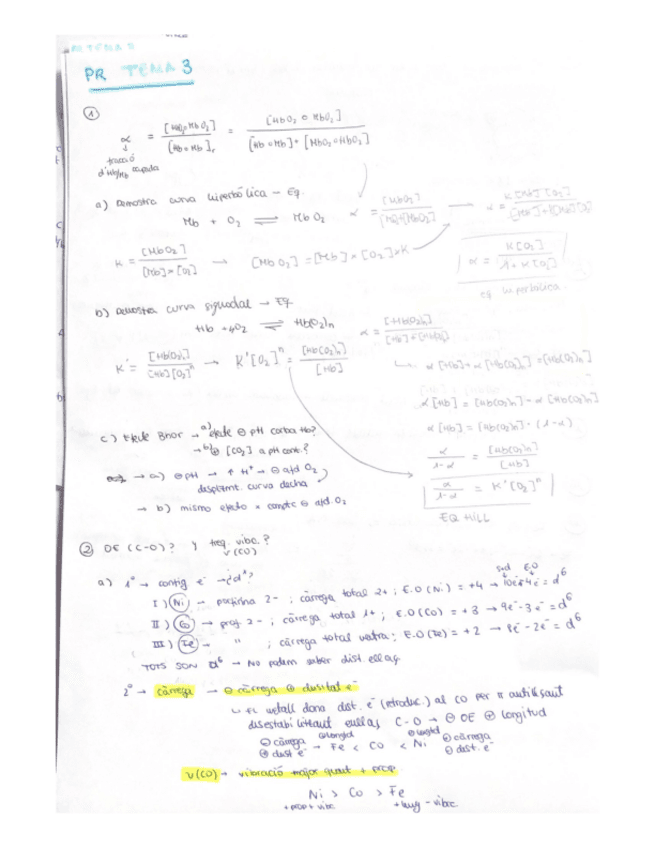 PR TEMA 3
①
α = [HbO₂ o MbO₂] / [Hb o Mb]ᵣ = [HbO₂ o MbO₂] / [Hb o Mb] + [MbO₂ o HbO₂]
fracció
d'Hb/Mb ocupada
a) Demostra curva hiperbólica → Eq.
Mb + O₂ ⇌ MbO₂ α = [MbO₂] / [Mb]+[MbO₂] → α = K[Mb][O₂] / [Mb]+K[Mb][O₂]
K = [MbO₂] / [Mb]×[O₂] → [MbO₂] = [Mb]×[O₂]×K
α = K[O₂] / 1+K[O₂]
eq hiperbólica
b) Demostra curva sigmodal → Eq.
Hb + 4O₂ ⇌ Hb(O₂)n α = [Hb(O₂)n] / [Hb]+[Hb(O₂)n]
K' = [Hb(O₂)n] / [Hb][O₂]ⁿ → K'[O₂]ⁿ = [Hb(O₂)n] / [Hb]
α[Hb] + α[Hb(O₂)n] = [Hb(O₂)n]
α[Hb] = [Hb(O₂)n] - α[Hb(O₂)n]
α[Hb] = [Hb(O₂)n] · (1-α)
α / 1-α = [Hb(O₂)n] / [Hb]
α / 1-α = K'[O₂]ⁿ
EQ HILL
c) Efecte Bhor → a) efecte ⊖ pH corba Hb?
→ b) ⊕ [CO₂] a pH cont.?
→ a) ⊖ pH → ↑ H⁺ → ⊖ afd O₂
desplzmt. curva decha
→ b) mismo efecto × compte ⊖ afd O₂
② OE (C-O)? Y freq. vibc.?
ν(CO)
a) 1º → config e⁻ → ¿dⁿ?
I) Ni → porfirina 2- ; càrrega total 2+ ; E.O (Ni) = +4 → 10e⁻-4e⁻ = d⁶
II) Co → porf 2- ; càrrega total 1+ ; E.O (Co) = +3 → 9e⁻-3e⁻ = d⁶
III) Fe → " ; càrrega total neutra ; E.O (Fe) = +2 → 8e⁻-2e⁻ = d⁶
TOTS SON d⁶ → No podem saber dist. enllaç.
2º → càrrega → ⊖ càrrega ⊕ dusital e⁻
EL metall dona dist. e⁻ (retrodoc.) al CO per π antienllaçant
disestabilitzant enllaç C-O → ⊖ OE ⊕ longitud
⊖ càrrega ⊕ longtd ⊖ longtd ⊕ càrrega
⊕ dust e⁻ → Fe < Co < Ni ⊖ dist. e⁻
ν(CO) → vibració major quant + prop
Ni > Co > Fe
+ prop + vibc + lluny - vibc